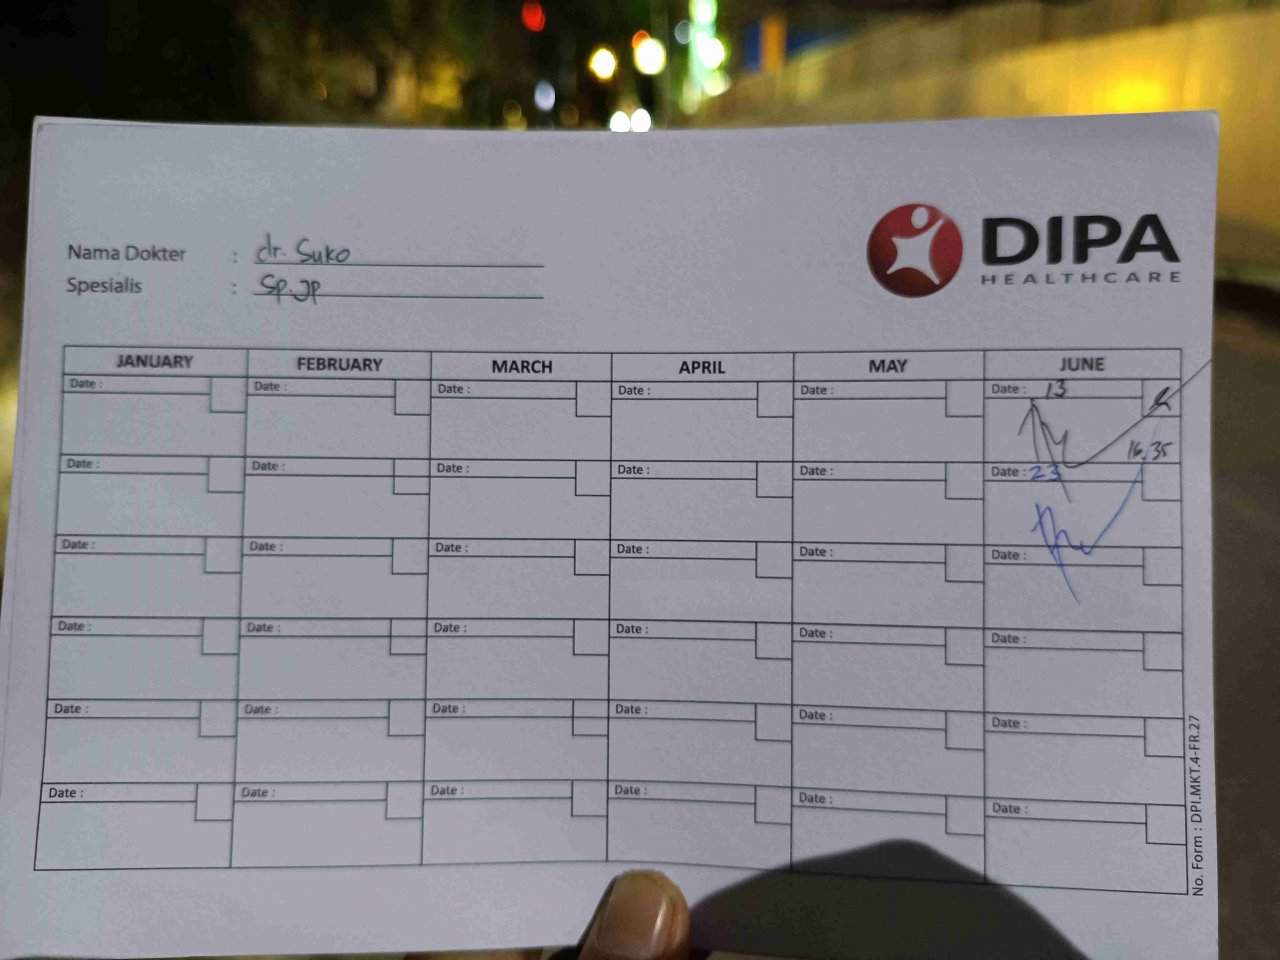 DIPA
HEALTHCARE
Nama Dokter : dr. Suko
Spesialis : Sp.JP
JANUARY FEBRUARY MARCH APRIL MAY JUNE
Date : Date : Date : Date : Date : Date : 13
16.35
Date : Date : Date : Date : Date : Date : 23
Date : Date : Date : Date : Date : Date :
Date : Date : Date : Date : Date : Date :
Date : Date : Date : Date : Date : Date :
Date : Date : Date : Date : Date : Date :
No. Form : DPI.MKT.4-FR.27